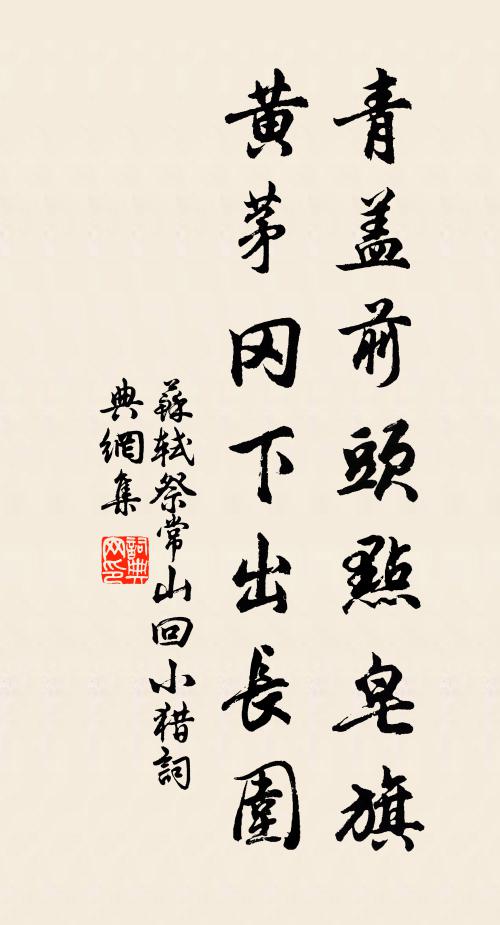 青蓋前頭點皂旗
黃茅冈下出長圍
蘇軾祭常山回小猎詞
典網集
詞典
网印